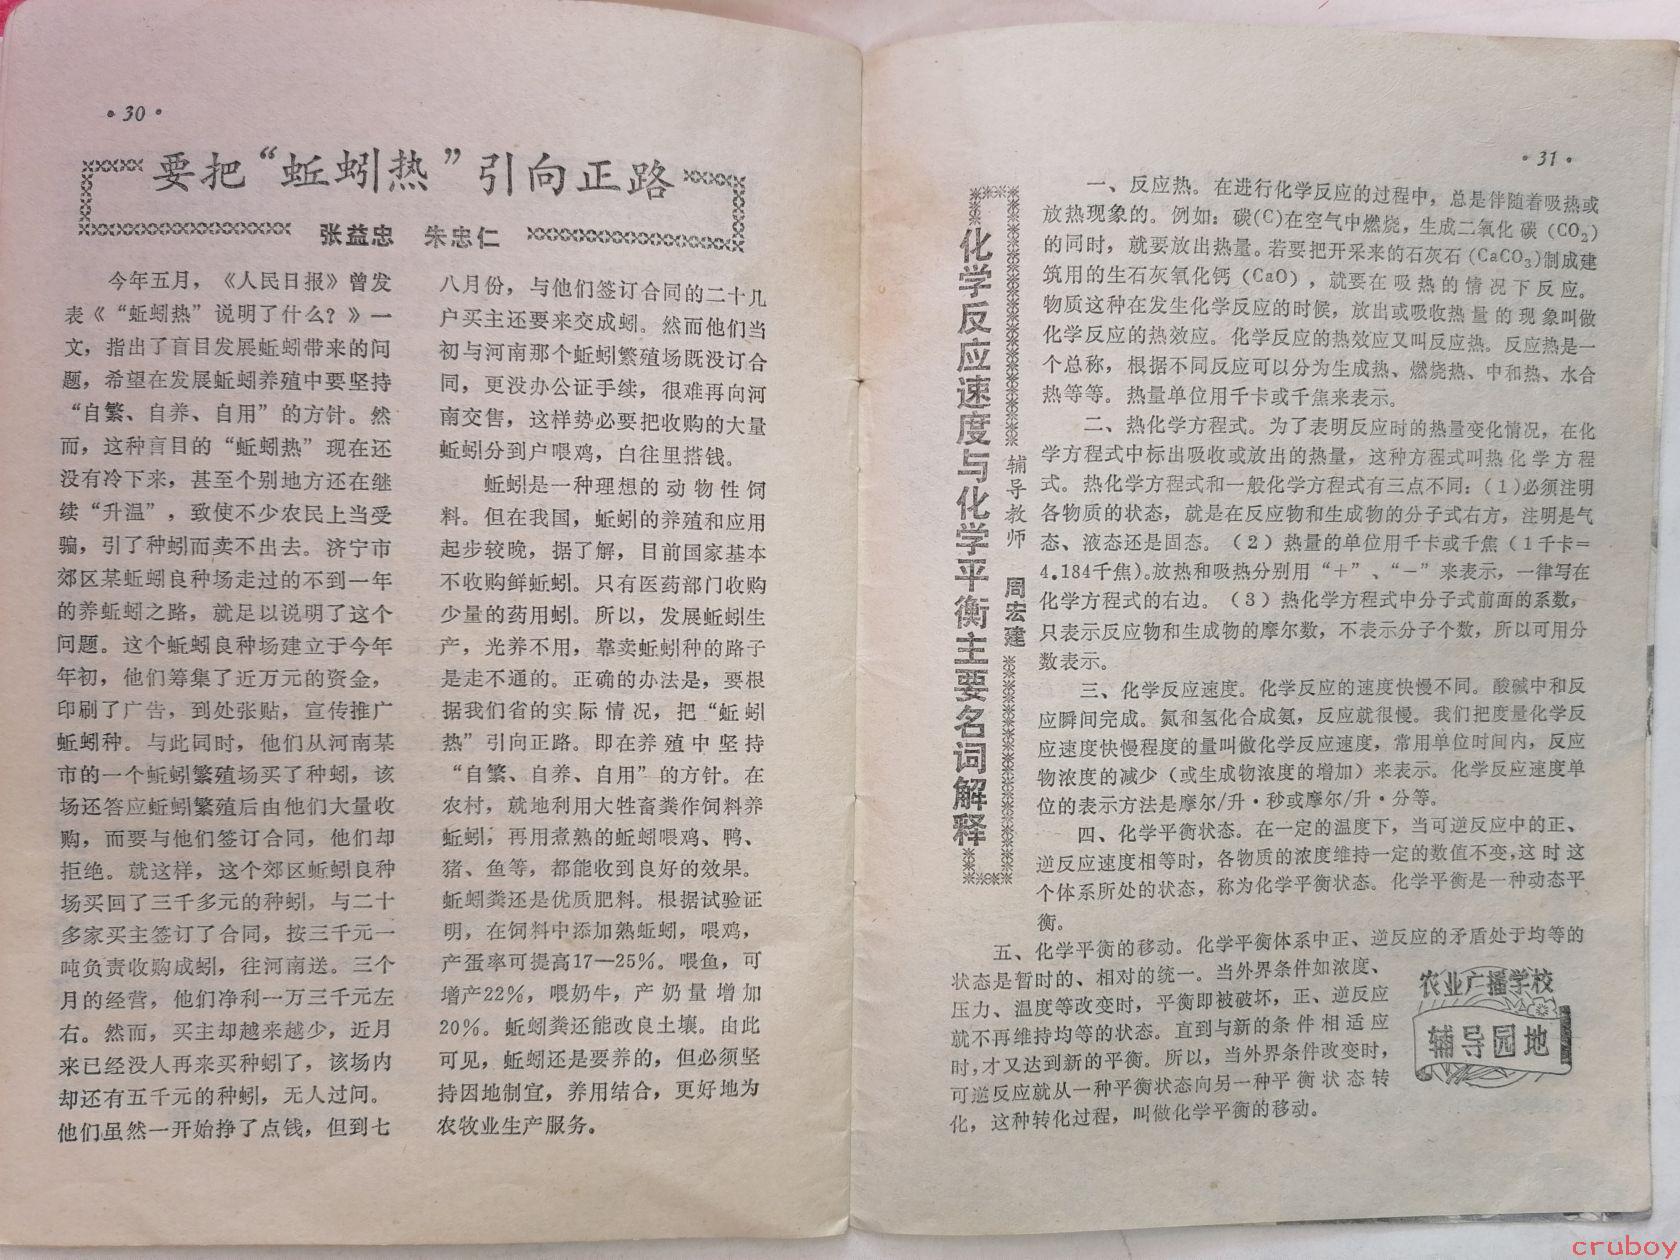 ·30·
要把“蚯蚓热”引向正路
张益忠 朱忠仁
今年五月，《人民日报》曾发
表《“蚯蚓热”说明了什么？》一
文，指出了盲目发展蚯蚓带来的问
题，希望在发展蚯蚓养殖中要坚持
“自繁、自养、自用”的方针。然
而，这种盲目的“蚯蚓热”现在还
没有冷下来，甚至个别地方还在继
续“升温”，致使不少农民上当受
骗，引了种蚓而卖不出去。济宁市
郊区某蚯蚓良种场走过的不到一年
的养蚯蚓之路，就足以说明了这个
问题。这个蚯蚓良种场建立于今年
年初，他们筹集了近万元的资金，
印刷了广告，到处张贴，宣传推广
蚯蚓种。与此同时，他们从河南某
市的一个蚯蚓繁殖场买了种蚓，该
场还答应蚯蚓繁殖后由他们大量收
购，而要与他们签订合同，他们却
拒绝。就这样，这个郊区蚯蚓良种
场买回了三千多元的种蚓，与二十
多家买主签订了合同，按三千元一
吨负责收购成蚓，往河南送。三个
月的经营，他们净利一万三千元左
右。然而，买主却越来越少，近月
来已经没人再来买种蚓了，该场内
却还有五千元的种蚓，无人过问。
他们虽然一开始挣了点钱，但到七
八月份，与他们签订合同的二十几
户买主还要来交成蚓。然而他们当
初与河南那个蚯蚓繁殖场既没订合
同，更没办公证手续，很难再向河
南交售，这样势必要把收购的大量
蚯蚓分到户喂鸡，白往里搭钱。
蚯蚓是一种理想的动物性饲
料。但在我国，蚯蚓的养殖和应用
起步较晚，据了解，目前国家基本
不收购鲜蚯蚓。只有医药部门收购
少量的药用蚓。所以，发展蚯蚓生
产，光养不用，靠卖蚯蚓种的路子
是走不通的。正确的办法是，要根
据我们省的实际情况，把“蚯蚓
热”引向正路。即在养殖中坚持
“自繁、自养、自用”的方针。在
农村，就地利用大牲畜粪作饲料养
蚯蚓，再用煮熟的蚯蚓喂鸡、鸭、
猪、鱼等，都能收到良好的效果。
蚯蚓粪还是优质肥料。根据试验证
明，在饲料中添加熟蚯蚓，喂鸡，
产蛋率可提高17—25%。喂鱼，可
增产22%，喂奶牛，产奶量增加
20%。蚯蚓粪还能改良土壤。由此
可见，蚯蚓还是要养的，但必须坚
持因地制宜，养用结合，更好地为
农牧业生产服务。
·31·
化学反应速度与化学平衡主要名词解释
辅导教师 周宏建
一、反应热。在进行化学反应的过程中，总是伴随着吸热或
放热现象的。例如：碳(C)在空气中燃烧，生成二氧化碳（CO₂）
的同时，就要放出热量。若要把开采来的石灰石(CaCO₃)制成建
筑用的生石灰氧化钙（CaO），就要在吸热的情况下反应。
物质这种在发生化学反应的时候，放出或吸收热量的现象叫做
化学反应的热效应。化学反应的热效应又叫反应热。反应热是一
个总称，根据不同反应可以分为生成热、燃烧热、中和热、水合
热等等。热量单位用千卡或千焦来表示。
二、热化学方程式。为了表明反应时的热量变化情况，在化
学方程式中标出吸收或放出的热量，这种方程式叫热化学方程
式。热化学方程式和一般化学方程式有三点不同：（1）必须注明
各物质的状态，就是在反应物和生成物的分子式右方，注明是气
态、液态还是固态。（2）热量的单位用千卡或千焦（1千卡＝
4.184千焦）。放热和吸热分别用“＋”、“－”来表示，一律写在
化学方程式的右边。（3）热化学方程式中分子式前面的系数，
只表示反应物和生成物的摩尔数，不表示分子个数，所以可用分
数表示。
三、化学反应速度。化学反应的速度快慢不同。酸碱中和反
应瞬间完成。氮和氢化合成氨，反应就很慢。我们把度量化学反
应速度快慢程度的量叫做化学反应速度，常用单位时间内，反应
物浓度的减少（或生成物浓度的增加）来表示。化学反应速度单
位的表示方法是摩尔/升·秒或摩尔/升·分等。
四、化学平衡状态。在一定的温度下，当可逆反应中的正、
逆反应速度相等时，各物质的浓度维持一定的数值不变，这时这
个体系所处的状态，称为化学平衡状态。化学平衡是一种动态平
衡。
五、化学平衡的移动。化学平衡体系中正、逆反应的矛盾处于均等的
状态是暂时的、相对的统一。当外界条件如浓度、
压力、温度等改变时，平衡即被破坏，正、逆反应
就不再维持均等的状态。直到与新的条件相适应
时，才又达到新的平衡。所以，当外界条件改变时，
可逆反应就从一种平衡状态向另一种平衡状态转
化，这种转化过程，叫做化学平衡的移动。
农业广播学校
辅导园地
cruboy